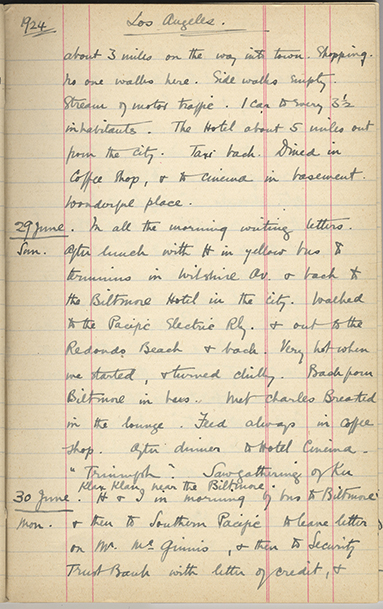 1924 Los Angeles.
about 3 miles on the way into town. Shopping.
No one walks here. Side walks empty.
Stream of motor traffic. 1 Car to every 3½
inhabitants. The Hotel about 5 miles out
from the city. Taxi back. Dined in
Coffee Shop, & to cinema in basement.
Wonderful place.
29 June. In all the morning writing letters.
Sun. After lunch with H in yellow bus to
terminus in Wilshire Av. & back to
the Biltmore Hotel in the city. Walked
to the Pacific Electric Rly. & out to the
Redondo Beach & back. Very hot when
we started, & turned chilly. Back from
Biltmore in bus. Met Charles Breasted
in the lounge. Feed always in Coffee
Shop. After dinner to Hotel Cinema.
"Triumph". Saw gathering of Ku
Klux Klan near the Biltmore.
30 June. H & I in morning by bus to Biltmore
Mon. & then to Southern Pacific to leave letter
on Mr. McGinnis, & then to Security
Trust Bank with letter of credit, &